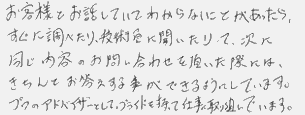 お客様とお話していてわからないことがあったら、
すぐに調べたり、技術色に聞いたりって、次に
同じ内容のお問い合わせを頂いた際には、
きちんとお答えする事ができるようにしています。
プロのアドバイザーとして、プライドを持って仕事に取り組んでいます。